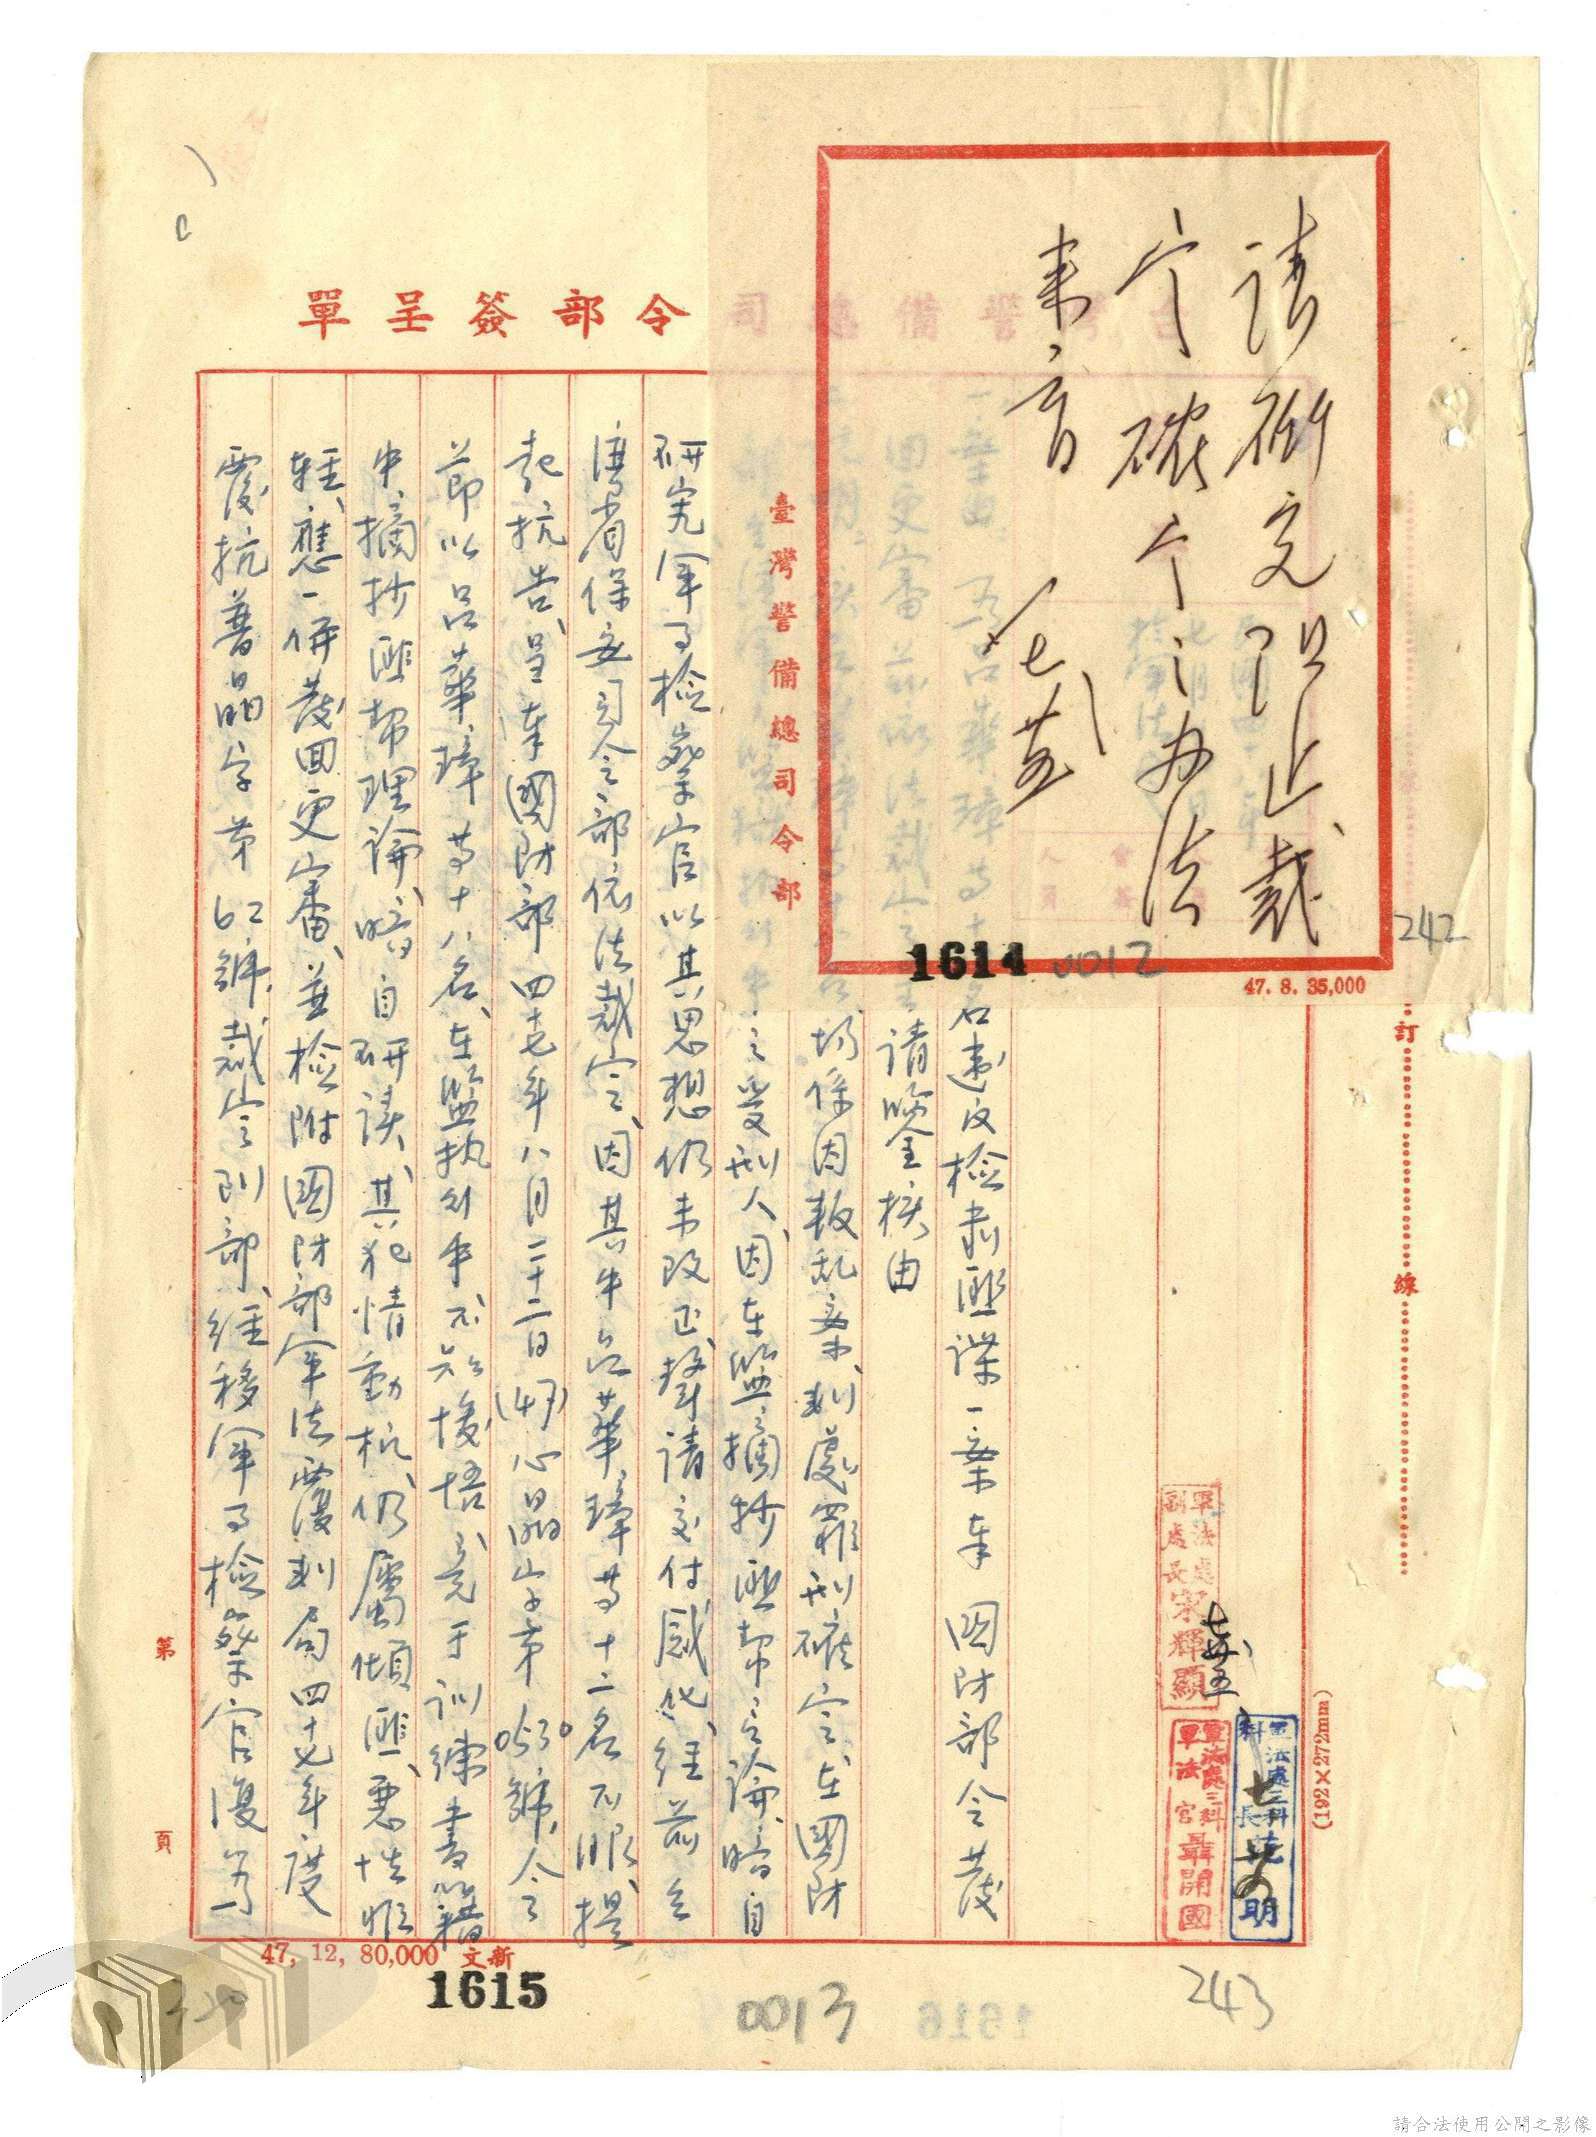 請研究阻止裁
定確定之办法
来言
臺灣警備總司令部
1614 0012
242
47. 8. 35,000
令部簽呈單
名遵令檢肅匪諜一案奉 國防部令發
請鑒核由
均係因叛乱案判處罪刑確定在國防
之受刑人、因在監摘抄匪幫言論、暗自
研究、軍事檢察官以其思想仍未改正、聲請交付感化、經前台
灣省保安司令部依法裁定、因其中呂華璋等十二名不服、提
起抗告、呈奉國防部四十七年八月二十二日(47)心晶字第0530號令
節以呂華璋等十八名、在監執行中不知悔悟、竟于訓練書籍
中、摘抄匪幫理論、暗自研讀、其犯情動机、仍屬傾匪、惡性非
輕、應一併發回更審、並檢附國防部軍法覆判局四十七年度
覆抗普晶字第62號裁定到部、經移軍事檢察官復為
軍法處副處長宋輝顯
軍法處三科軍法官聶開國
訂
線
(192×272mm)
第 頁
47, 12, 80,000 文新
1615
0013
243
請合法使用公開之影像